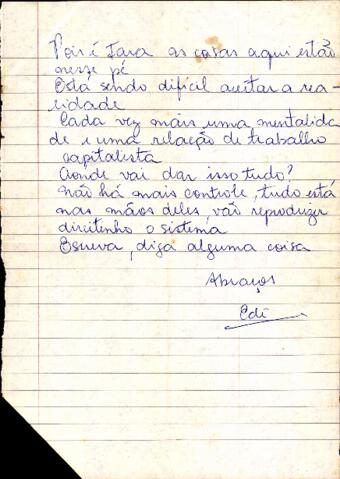 Pois é Iara as coisas aqui estão
nesse pé
Está sendo difícil aceitar a rea-
lidade
Cada vez mais uma mentalida
de e uma relação de trabalho
capitalista
Aonde vai dar isso tudo?
Não há mais controle, tudo está
nas mãos deles, vão reproduzir
direitinho o sistema
Escreva, diga alguma coisa
Abraços
Edi